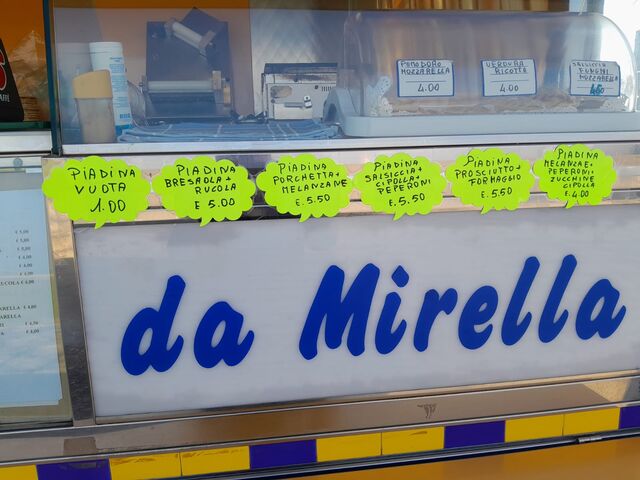 POMODORO
MOZZARELLA
4.00
VERDURA
RICOTTA
4.00
SALSICCIA
FUNGHI
MOZZARELLA
PIADINA
VUOTA
1.00
PIADINA
BRESAOLA+
RUCOLA
E 5.00
PIADINA
PORCHETTA+
MELANZANE
E 5.50
PIADINA
SALSICCIA+
CIPOLLA+
PEPERONI
E. 5.50
PIADINA
PROSCIUTTO+
FORMAGGIO
E 5.50
PIADINA
MELANZANE+
PEPERONI+
ZUCCHINE
CIPOLLA
E 4.00
da Mirella